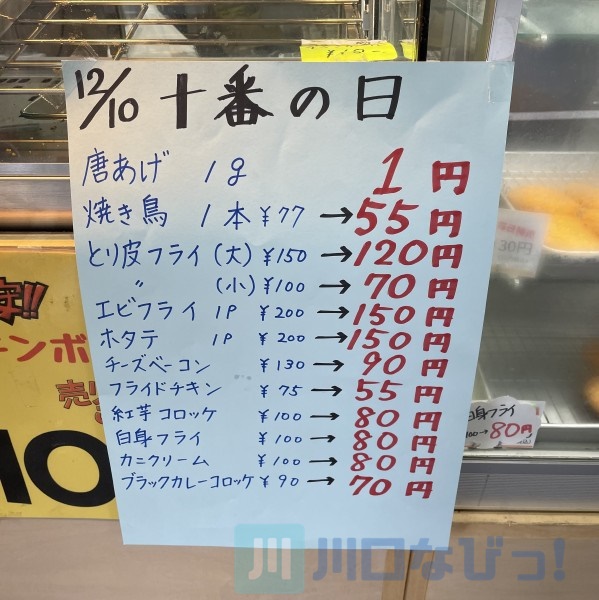 12/10 十番の日
唐あげ 1g 1円
焼き鳥 1本 ¥77 → 55円
とり皮フライ(大) ¥150 → 120円
〃 (小) ¥100 → 70円
エビフライ 1P ¥200 → 150円
ホタテ 1P ¥200 → 150円
チーズベーコン ¥130 → 90円
フライドチキン ¥75 → 55円
紅芋コロッケ ¥100 → 80円
白身フライ ¥100 → 80円
カニクリーム ¥100 → 80円
ブラックカレーコロッケ ¥90 → 70円
30円
白身フライ
100→80円
!!
チンボ
売り
10
川口なびっ!